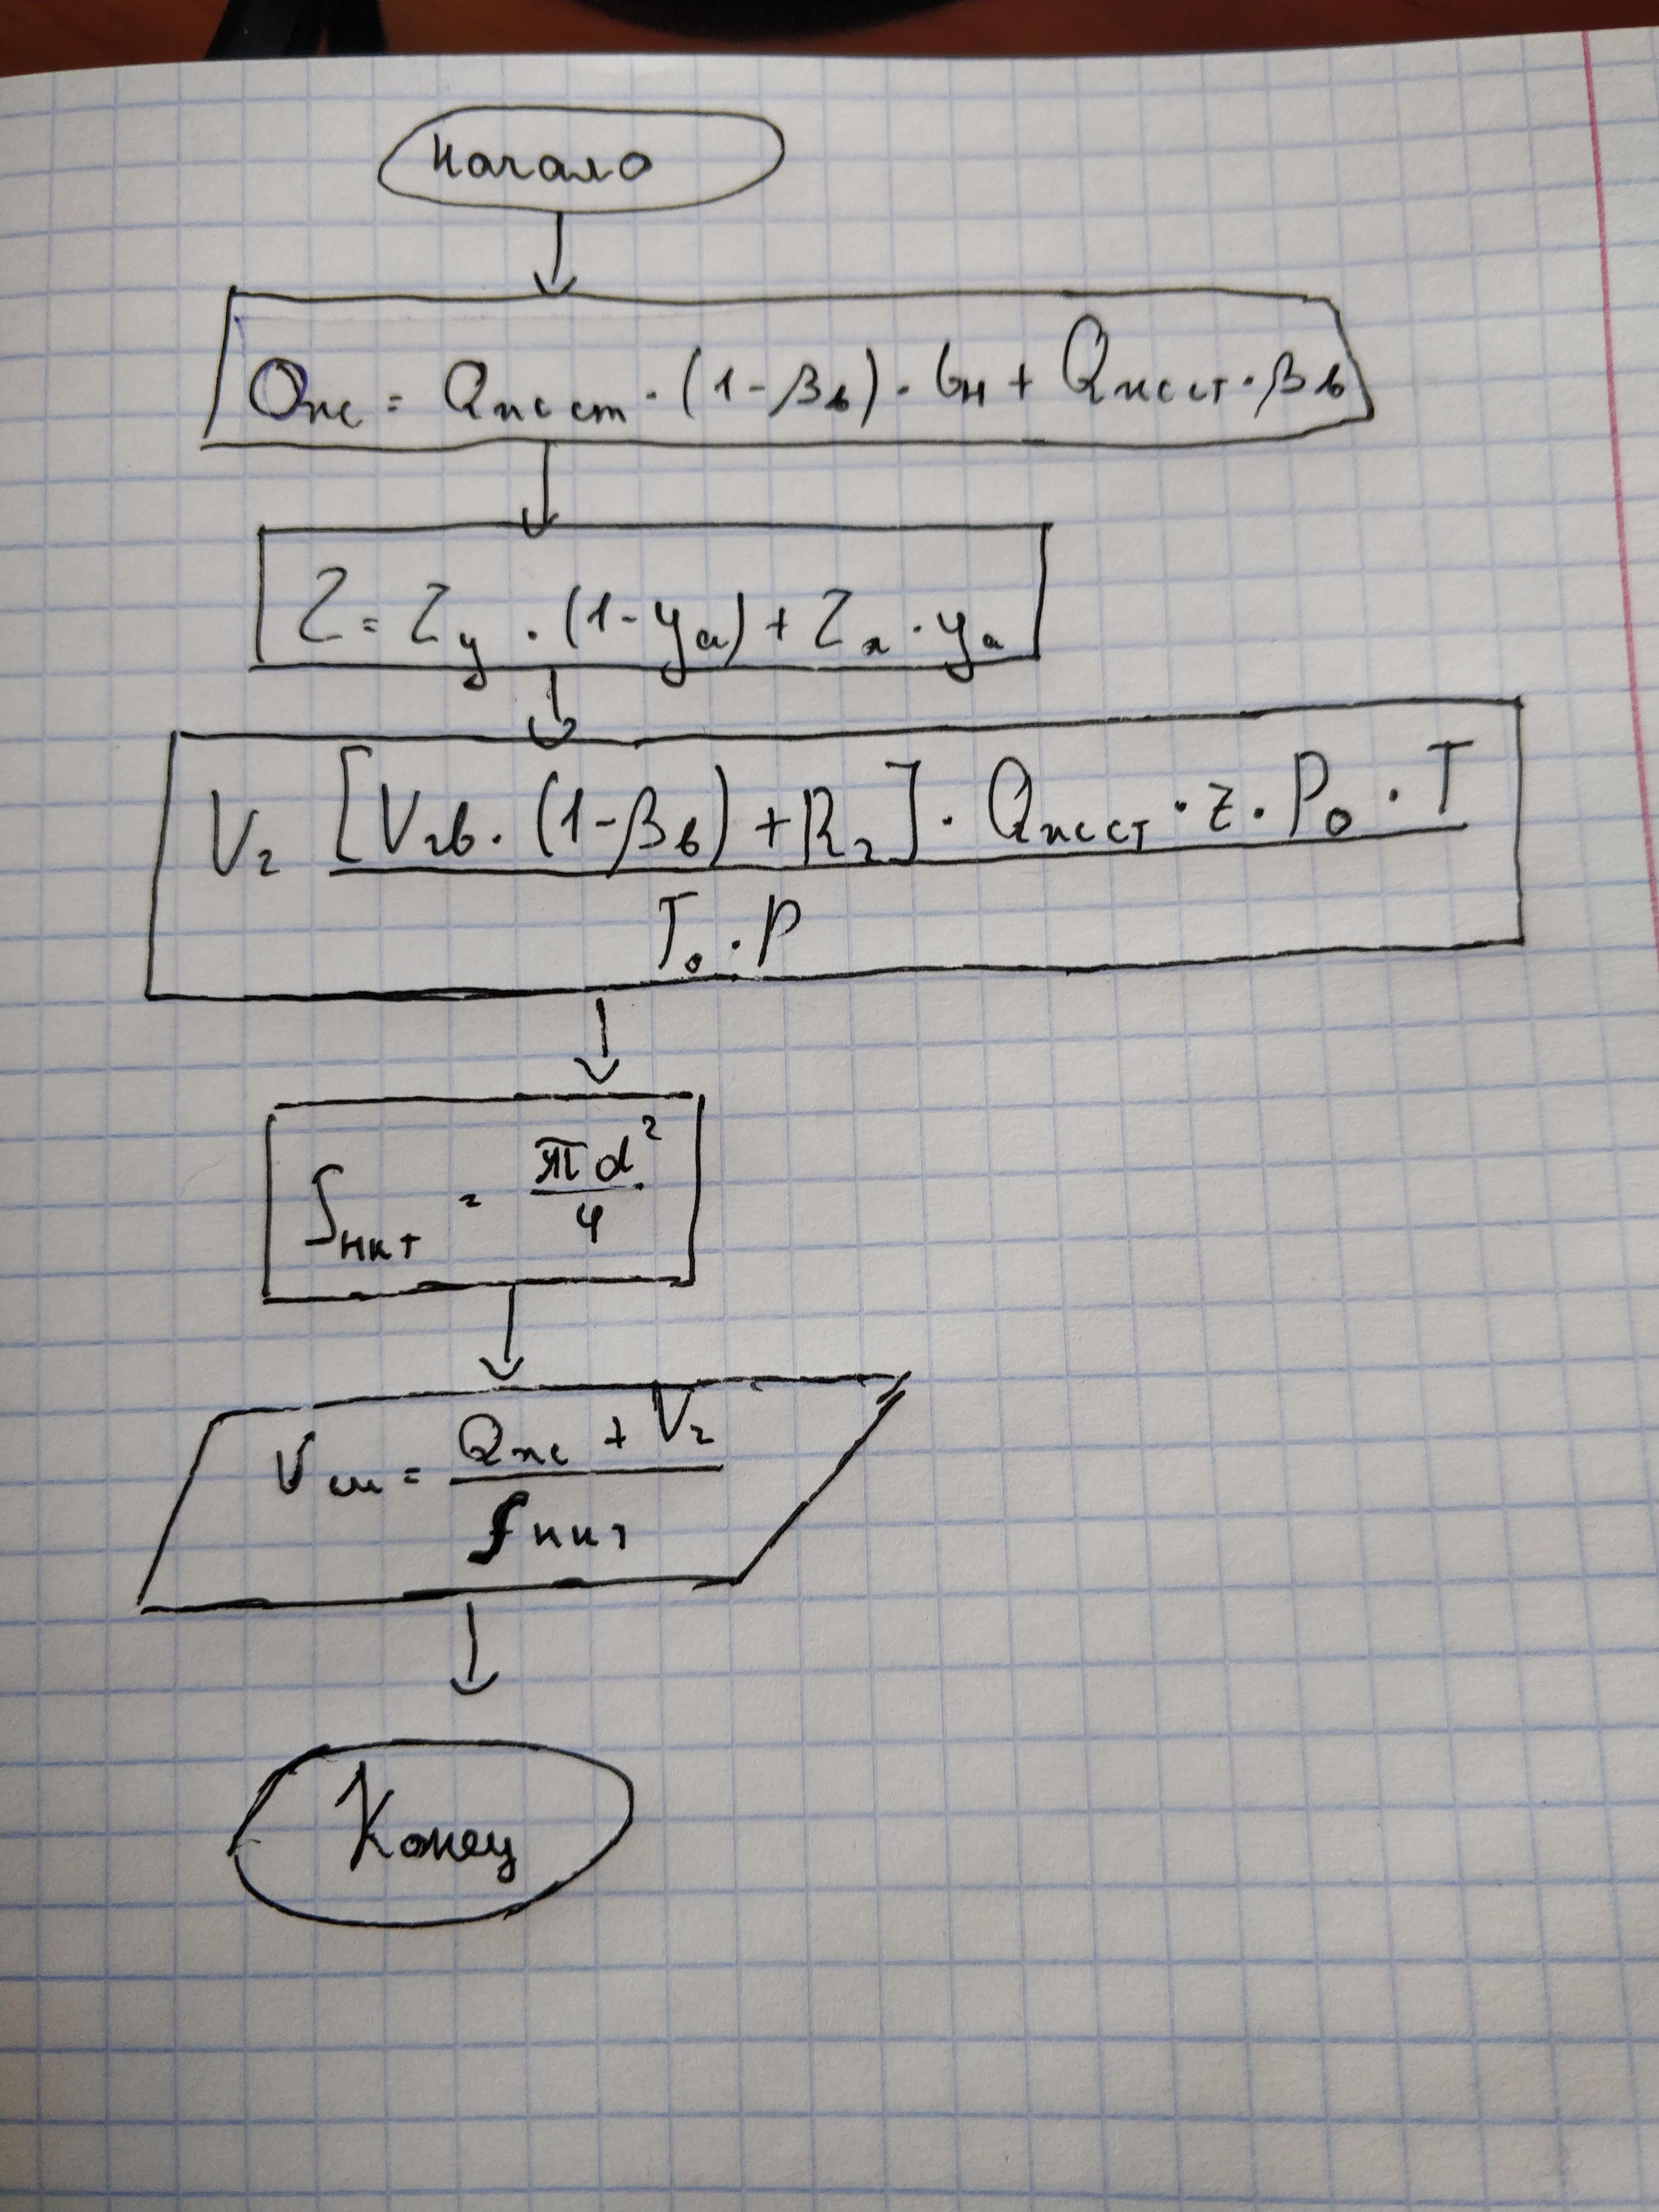 Начало
Qжс = Qжс ст · (1 - βв) · bн + Qжс ст · βв
Z = Zy · (1 - ya) + Za · ya
Vг [Vгв · (1 - βв) + Rг] · Qжс ст · z · P₀ · T
T₀ · P
fнкт = πd²
4
Vсм = Qжс + Vг
fнкт
Конец